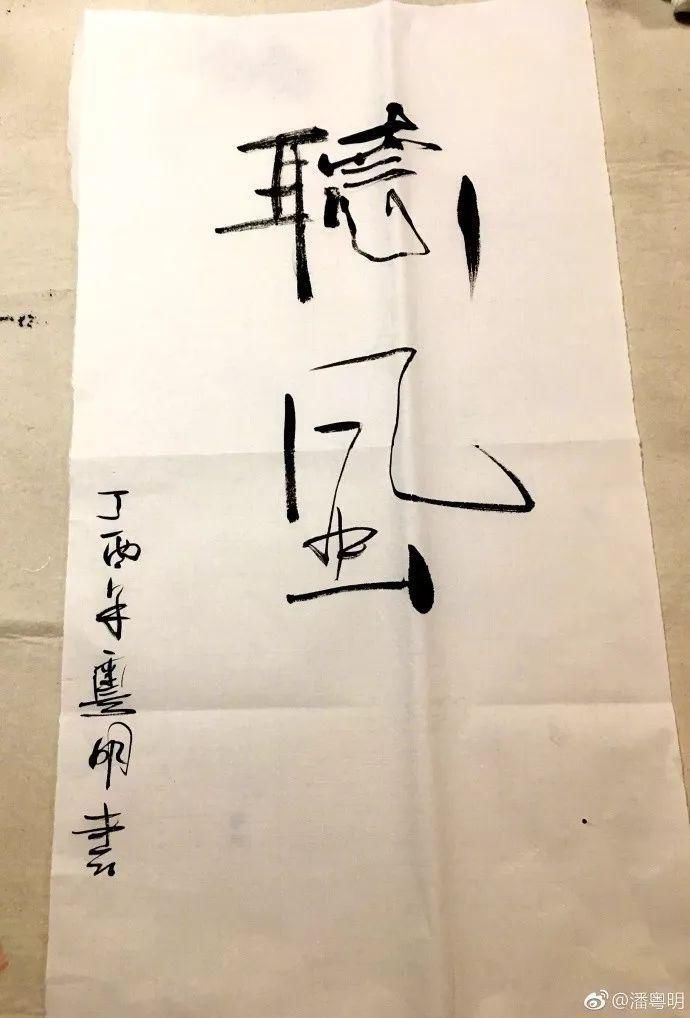 聽風
丁酉年粵明书
@潘粤明